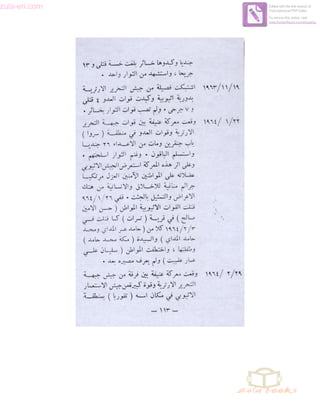 zula-eri.com
Edited with the trial version of
Foxit Advanced PDF Editor
To remove this notice, visit:
www.foxitsoftware.com/shopping
جنديا وكبدوها خسائر بلغت خمسة قتلى و ١٣
جريحا، واستشهد من الثوار واحد .
١٩٦٣/١١/١٩ اشتبكت فصيلة من جيش التحرير الارترية
بدورية اثيوبية وكبدت قوات العدو ٤ قتلى
و ٧ جرحى . ولم تصب قوات الثوار بخسائر .
١٩٦٤/ ١/٢٢ وقعت معركة عنيفة بين قوات جبهة التحرير
الارترية وقوات العدو في منطقة ( سروا )
باب جنقرين ومات من الاعداء ٢٦ جنديا
واستسلم الباقون . وغنم الثوار اسلحتهم .
وعلى اثر هذه المعركة استعرض الجيش الاثيوبي
عضلاته على المواطنين الآمنين العزل مرتكبا
جرائم منافية للاخلاق والانسانية من هتك
الاعراض والتمثيل بالجثث . ففي ١٩٦٤/١/٢٦
قتلت القوات الاثيوبية المواطن ( حسن الامين
صالح ) في قرية ( تمرات ) كما قتلت في
١٩٦٤/٢/٣ كلا من ( حامد عمر المنداي ومحمد
حامد المنداي ) والسيدة ( مكة محمد حامد )
وطفلتها ، واختطفت المواطن ( سليمان علي
عقيت ) ولم يعرف مصيره بعد .
١٩٦٤/ ٢/٢٩ وقعت معركة عنيفة بين فرقة من جيش جبهة
التحرير الارترية وقوة كبيرة من جيش الاستعمار
الاثيوبي في مكان اسمه ( تقوربا ) بمنطقة
— ١١٣ —
zula books